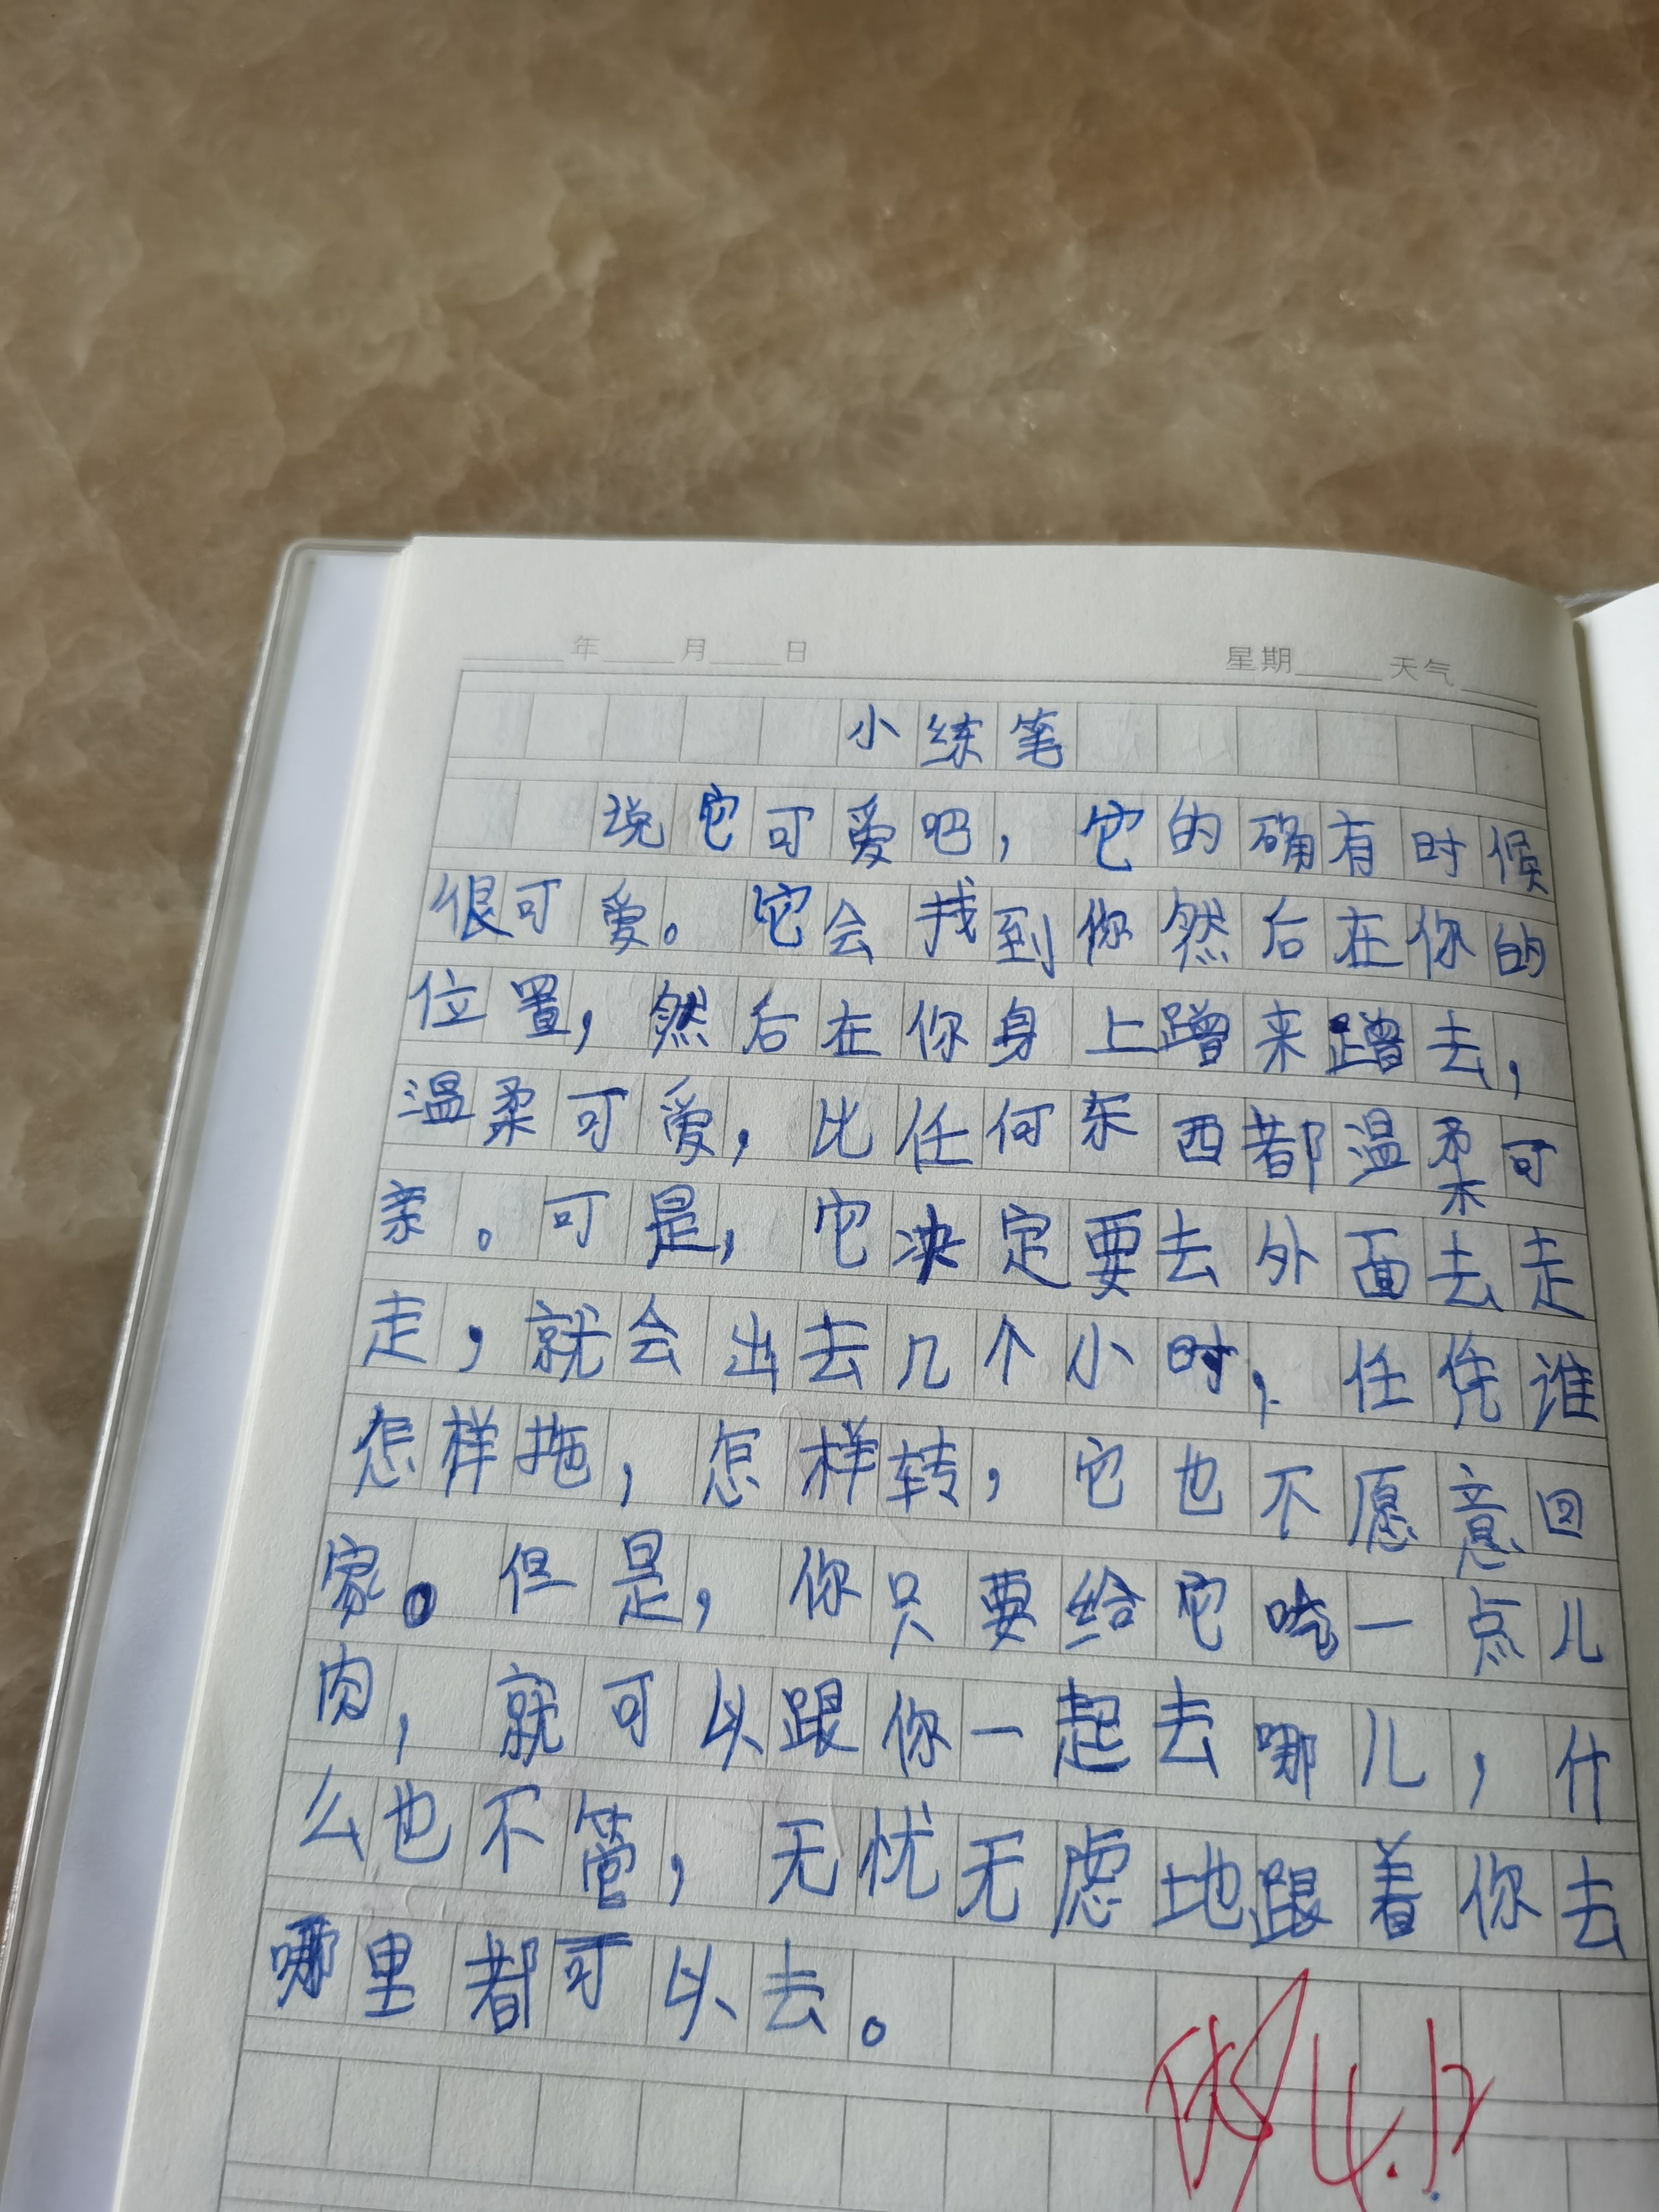 年 月 日 星期 天气
小练笔
说它可爱吧，它的确有时候
很可爱。它会找到你然后在你的
位置，然后在你身上蹭来蹭去，
温柔可爱，比任何东西都温柔可
亲。可是，它决定要去外面去走
走，就会出去几个小时，任凭谁
怎样拖，怎样转，它也不愿意回
家。但是，你只要给它吃一点儿
肉，就可以跟你一起去哪儿，什
么也不管，无忧无虑地跟着你去
哪里都可以去。
4.12